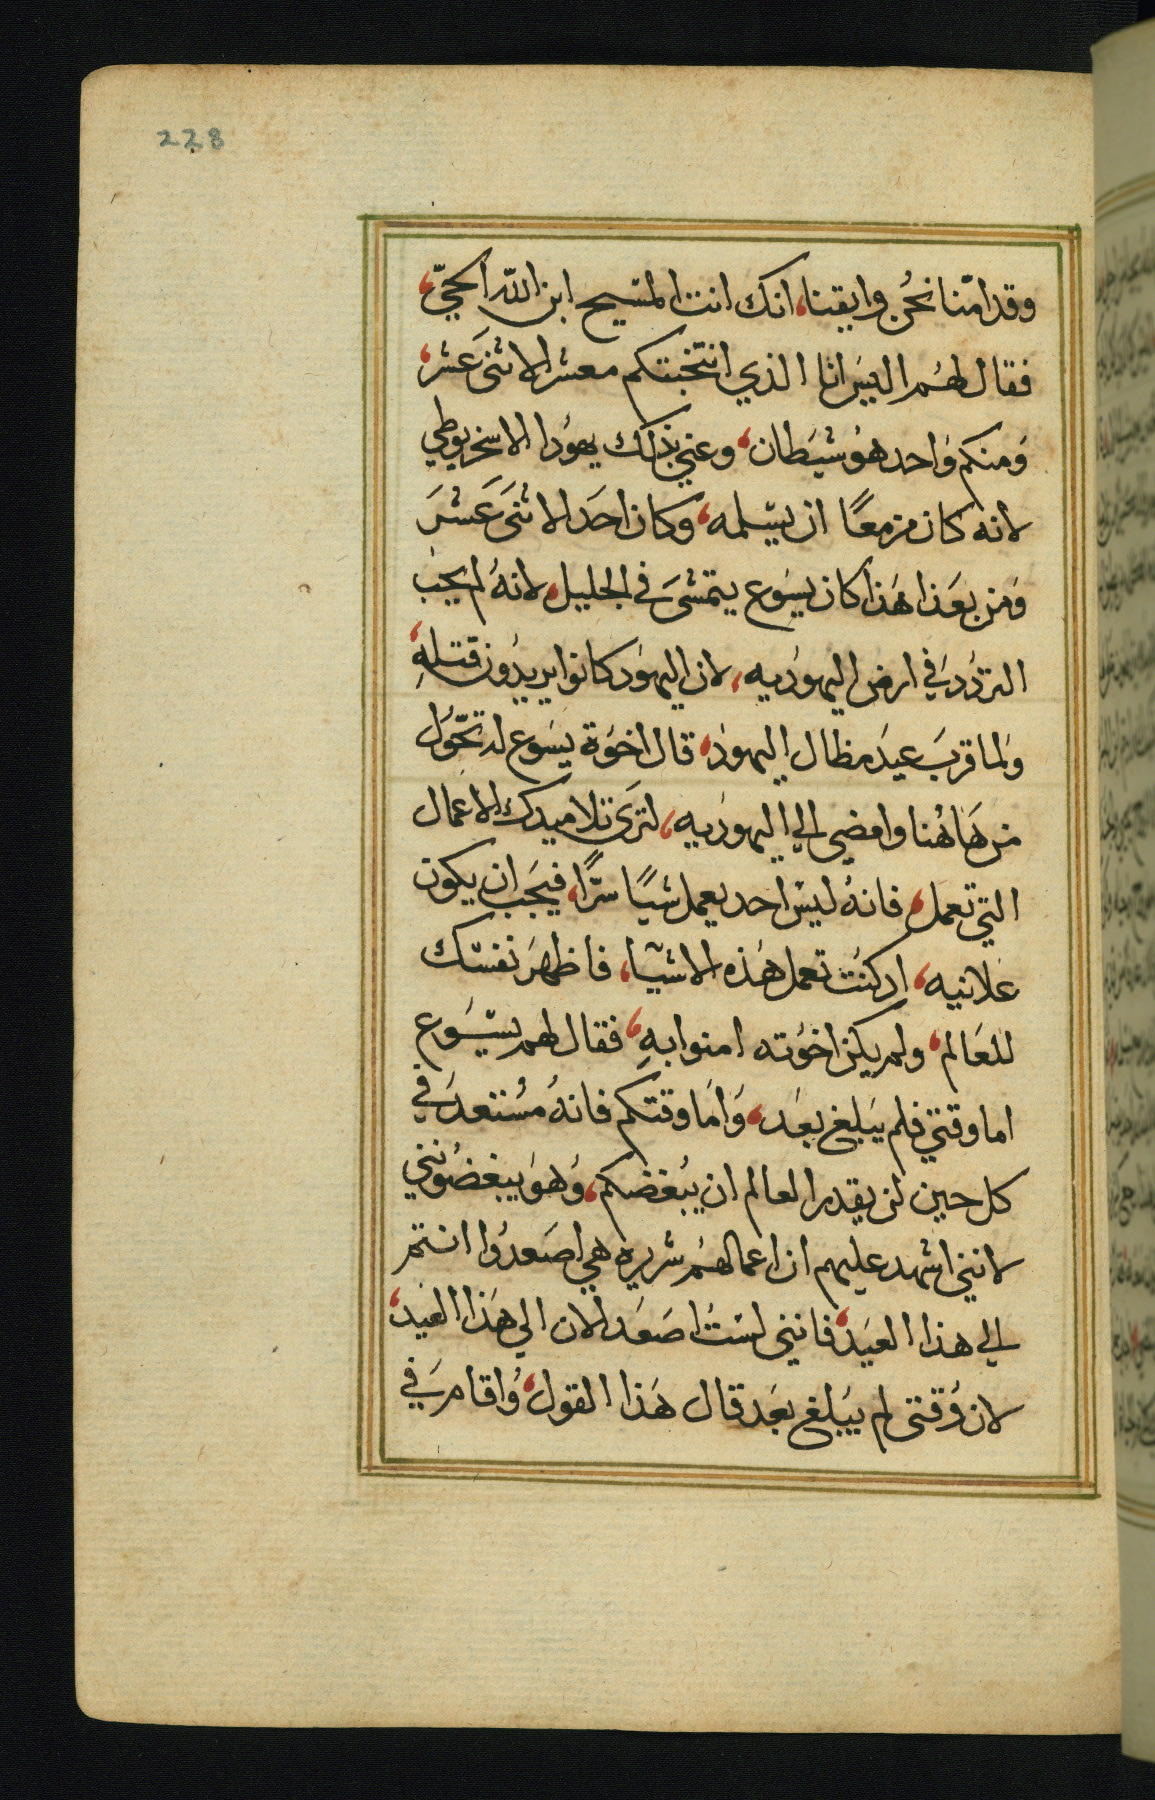 228
وقد امّنا نحُن وايقنا، انك انت المسَيح ابن اللّه الحيّ،
فقال لهُم اليسَ انا الذي انتخبتكم معشر الاثنىَ عَشر،
وَمنكم وَاحد هوُ شيَطان، وعني بذلك يهوُدا الاسخريوطي
لانه كان مزمعًا ان يسَلمه، وكان احَد الاثنىَ عَشَرَ
وَمن بعَد اهَذا كان يسَوع يتمشىَ في الجليل، لانهُ لم يجب
الترَدُد في ارض اليهوُديه، لان اليهوَد كانوا يريدُون قتلهِ،
وَلما قربَ عيَد مظال اليهوَد، قال اخوَة يسَوع له تحّوُل
من هَاهُنا وامضي الي اليهوُديه، لترَى تلاميدك الاعَمال
التي تعمل، فانهُ ليسَ احد يعمل شيًا سرًّا، فيجَب ان يكون
علانيه، اد كنُت تعمل هَذه الاشيآ، فاظهرَ نفسَك
للعَالم، ولم يكن اخوُته امنوا بهِ، فقال لهم يسَوع
اما وقتي فلم يبَلغ بعَد، وَامَا وقتكم فانهُ مسُتعدَ في
كل حين لن يقدر العالم ان يبُغضكم، وُهوَ يبغضُونني
لانني اشهد عليهم ان اعمالهُم شريره هي اصَعدُوا انتم
الي هذا العيَد، فانني لسَتُ اصَعَد الان الي هَذا العيَد،
لان وُقتى لم يبَلغ بعَد قال هَذا القول، وُاقامَ في